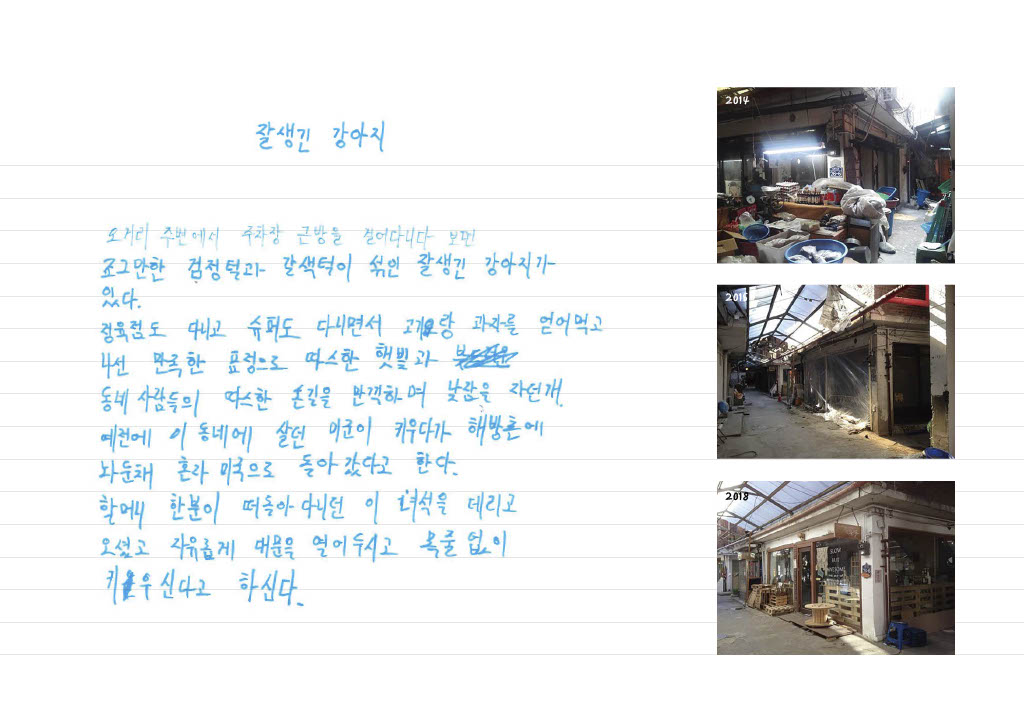 잘생긴 강아지
오거리 주변에서 주차장 근방을 걸어다니다 보면
조그만한 검정털과 갈색털이 섞인 잘생긴 강아지가
있다.
정육점도 다니고 슈퍼도 다니면서 고기랑 과자를 얻어먹고
나선 만족한 표정으로 따스한 햇빛과
동네 사람들의 따스한 손길을 만끽하며 낮잠을 자던개.
예전에 이 동네에 살던 미군이 키우다가 해방촌에
놔둔채 혼자 미국으로 돌아갔다고 한다.
할머니 한분이 떠돌아 다니던 이 녀석을 데리고
오셨고 자유롭게 대문을 열어두시고 목줄 없이
키우신다고 하신다.
2014
2015
2018
SLOW